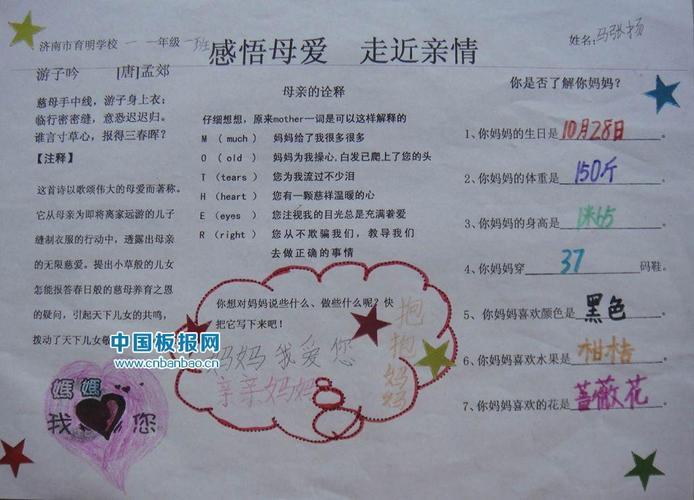 济南市育明学校 一 一年级 一班
姓名:马张扬
感悟母爱 走近亲情
游子吟 [唐]孟郊
慈母手中线，游子身上衣；
临行密密缝，意恐迟迟归。
谁言寸草心，报得三春晖？
【注释】
这首诗以歌颂伟大的母爱而著称。
它从母亲为即将离家远游的儿子
缝制衣服的行动中，透露出母亲
的无限慈爱。提出小草般的儿女
怎能报答春日般的慈母养育之恩
的疑问，引起天下儿女的共鸣，
拨动了天下儿女敬
母亲的诠释
仔细想想，原来mother一词是可以这样解释的
M （much） 妈妈给了我很多很多
O （old） 妈妈为我操心，白发已爬上了您的头
T （tears） 您为我流过不少泪
H （heart） 您有一颗慈祥温暖的心
E （eyes） 您注视我的目光总是充满着爱
R （right） 您从不欺骗我们，教导我们
去做正确的事情
你想对妈妈说些什么、做些什么呢？快
把它写下来吧！
妈妈我爱您
亲亲妈妈
抱抱妈妈
你是否了解你妈妈？
1、你妈妈的生日是10月28日。
2、你妈妈的体重是150斤。
3、你妈妈的身高是1米65。
4、你妈妈穿37码鞋。
5、你妈妈喜欢颜色是黑色。
6、你妈妈喜欢水果是柑桔。
7、你妈妈喜欢的花是蔷薇花。
中国板报网
www.cnbanbao.cn
媽媽
我 您